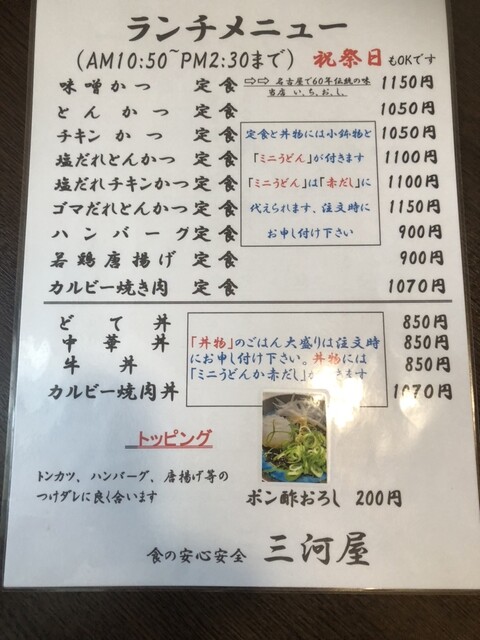 ランチメニュー
(AM10:50~PM2:30まで) 祝祭日もOKです
味噌かつ 定食 ⇨⇨ 名古屋で60年伝統の味 当店い、ち、お、し、 1150円
とんかつ 定食 1050円
チキンかつ 定食 1050円
塩だれとんかつ 定食 1100円
塩だれチキンかつ 定食 1100円
ゴマだれとんかつ 定食 1150円
ハンバーグ 定食 900円
若鶏唐揚げ 定食 900円
カルビー焼き肉 定食 1070円
定食と丼物には小鉢物と
「ミニうどん」が付きます
「ミニうどん」は「赤だし」に
代えられます、注文時に
お申し付け下さい
どて丼 850円
中華丼 850円
牛丼 850円
カルビー焼肉丼 1070円
「丼物」のごはん大盛りは注文時
にお申し付け下さい。丼物には
「ミニうどんか赤だし」が付きます
トッピング
トンカツ、ハンバーグ、唐揚げ等の
つけダレに良く合います
ポン酢おろし 200円
食の安心安全 三河屋